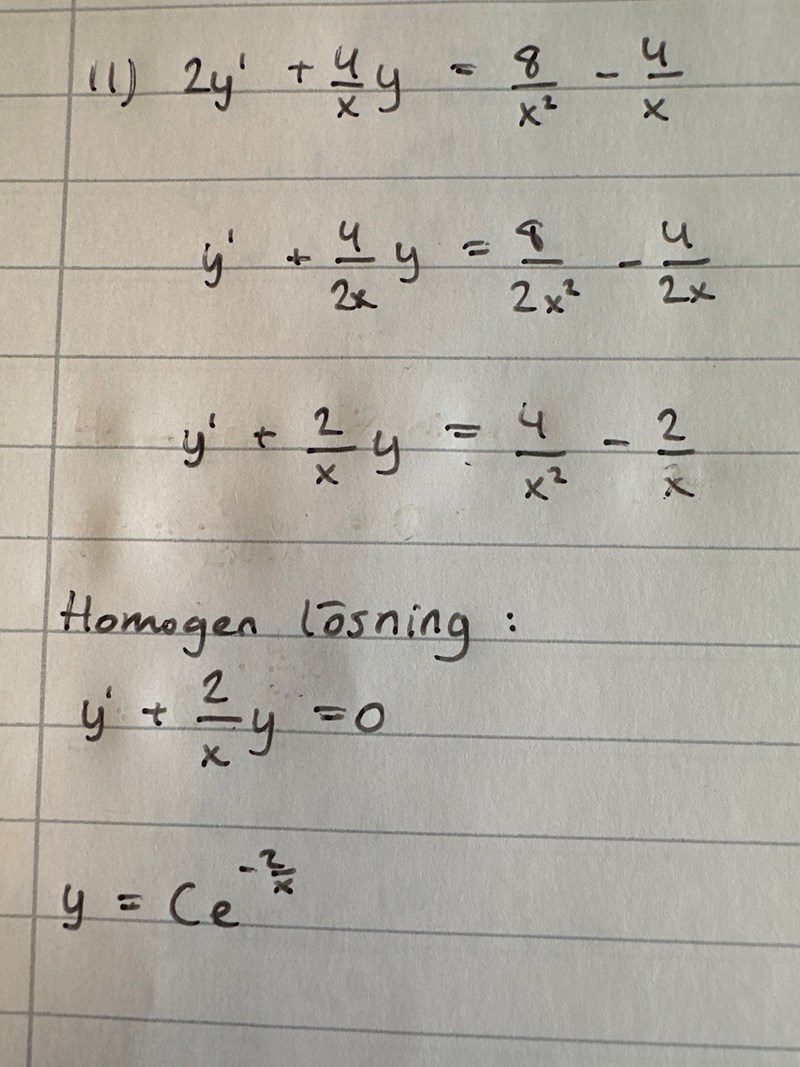 11) 2y' + 4/x y = 8/x² - 4/x
y' + 4/2x y = 8/2x² - 4/2x
y' + 2/x y = 4/x² - 2/x
Homogen lösning :
y' + 2/x y = 0
y = Ce^(-2/x)